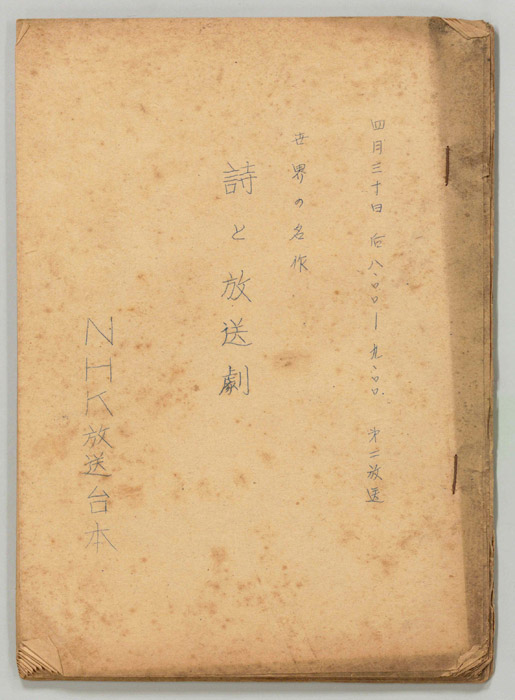 四月三十日 后八、〇〇ー九、〇〇 第二放送
世界の名作
詩と放送劇
NHK放送台本